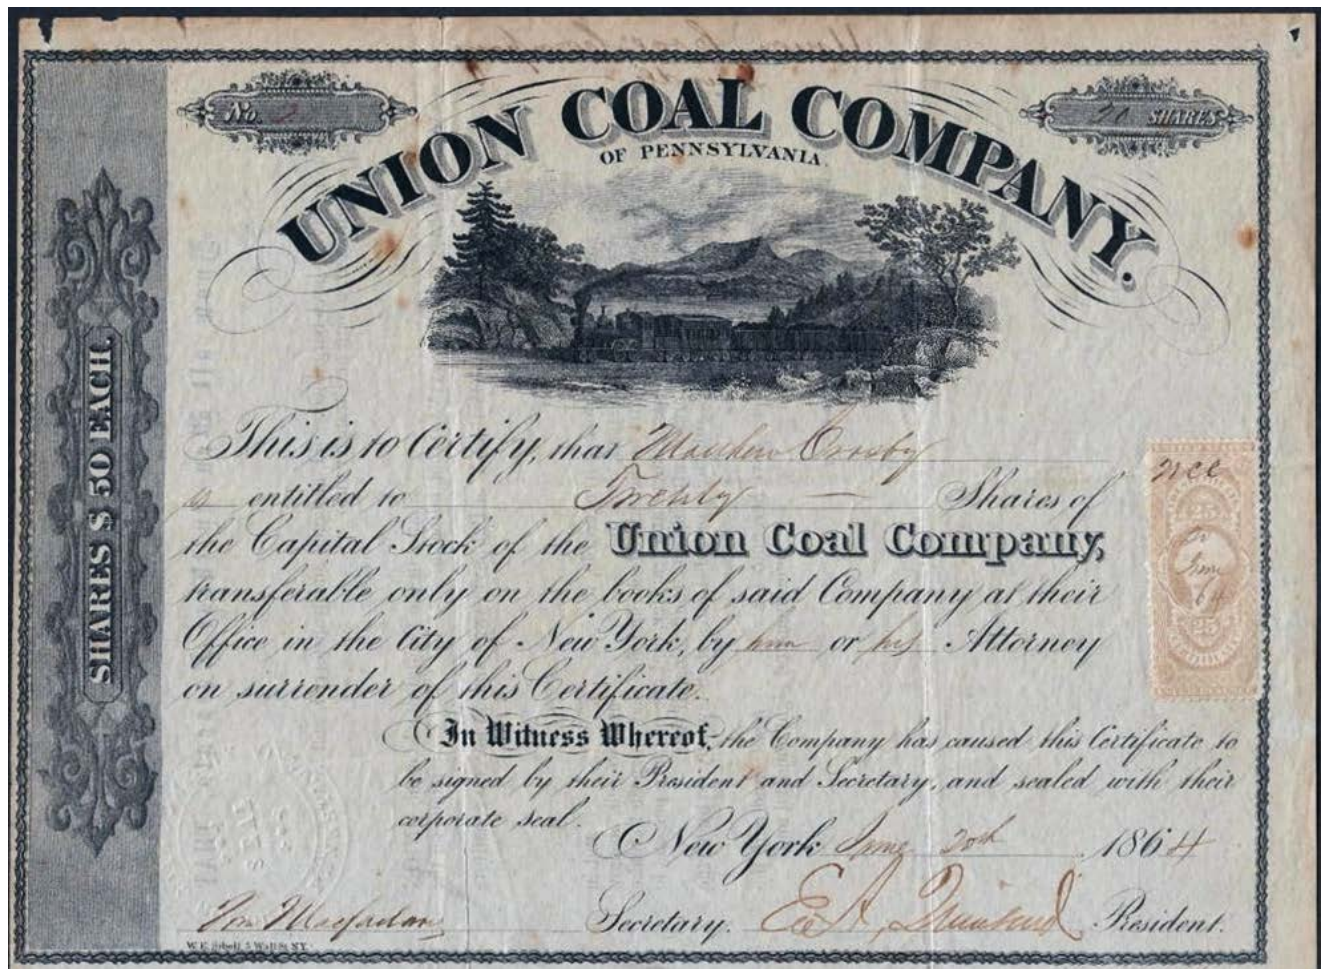 No. 2
20 SHARES
UNION COAL COMPANY.
OF PENNSYLVANIA.
SHARES $ 50 EACH.
This is to Certify, that Matthew Crosby
is entitled to Twenty — Shares of
the Capital Stock of the Union Coal Company,
transferable only on the books of said Company at their
Office in the City of New York, by him or his Attorney
on surrender of this Certificate.
25
20
June
64
25
In Witness Whereof, the Company has caused this Certificate to
be signed by their President and Secretary, and sealed with their
corporate seal.
New York June 20th 1864
Wm Macfarlan Secretary. President.
W.E. Sibell, 5 Wall St. N.Y.